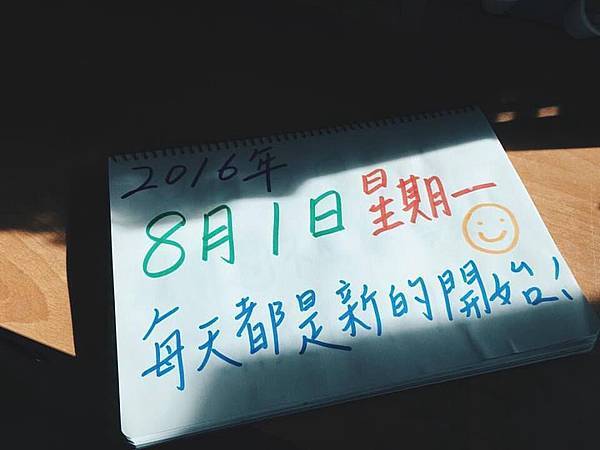 2016年
8月1日 星期一
每天都是新的開始!